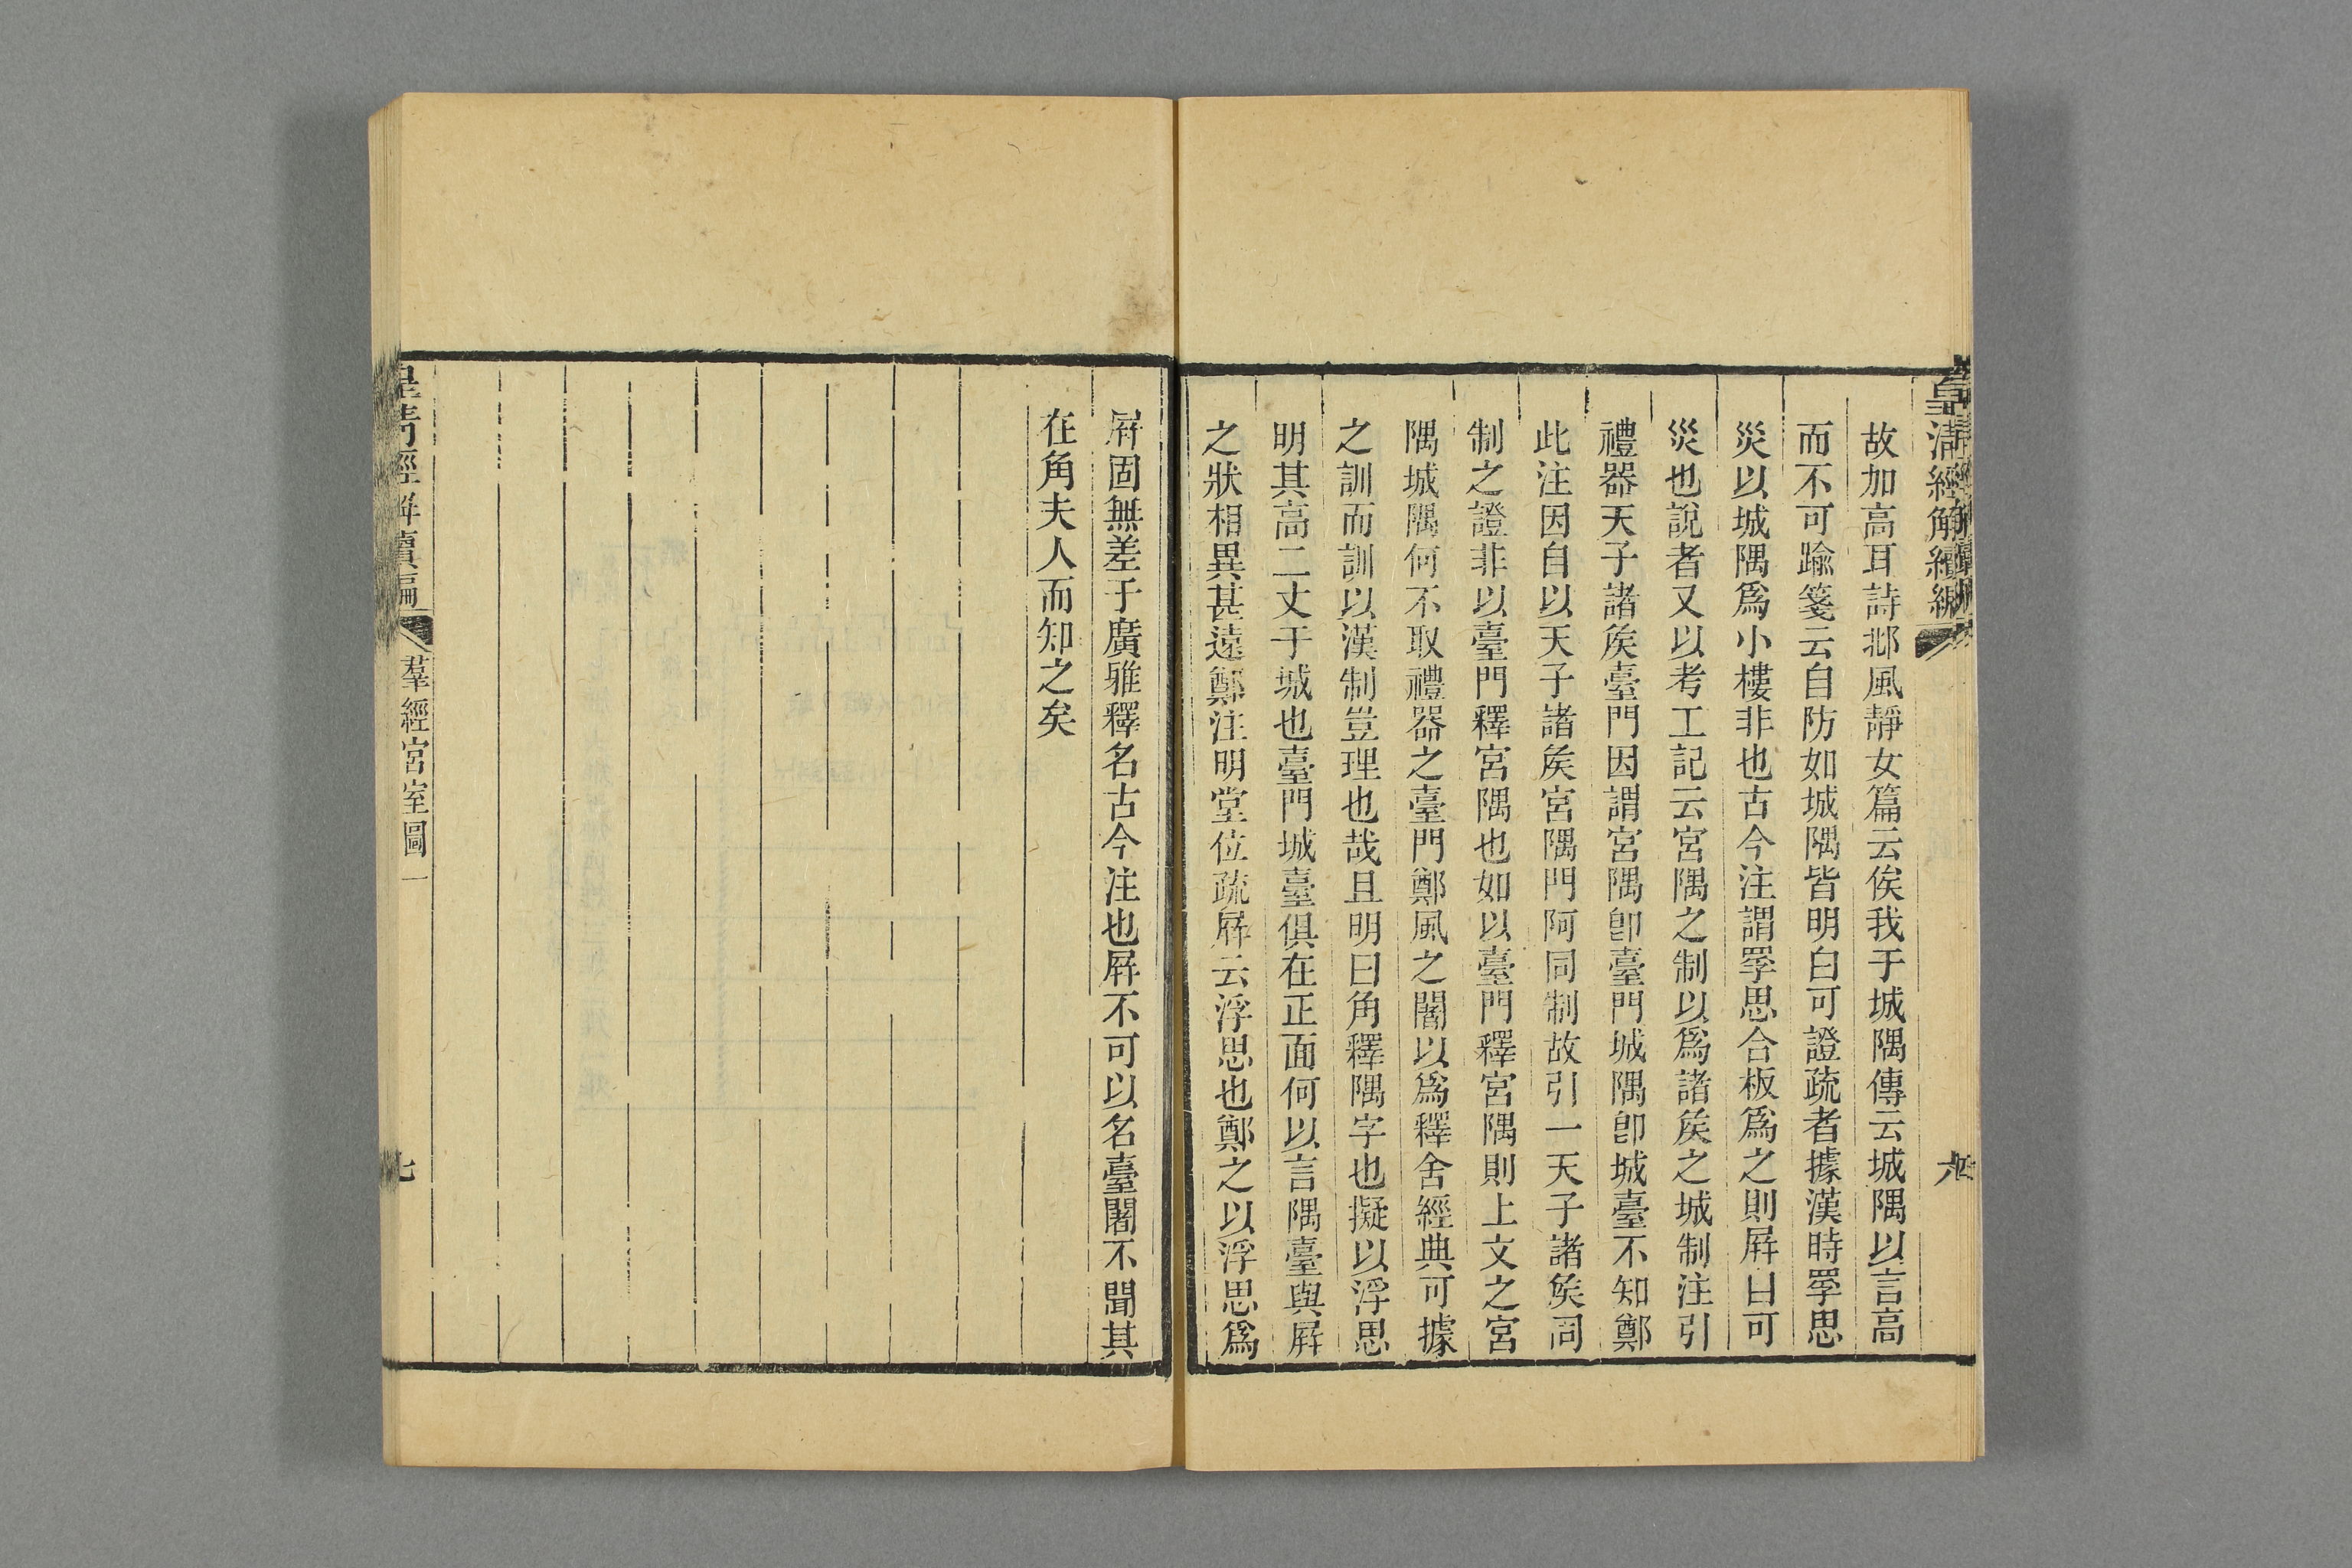 皇清經解續編
故加高耳詩邶風靜女篇云俟我于城隅傳云城隅以言高
而不可踰箋云自防如城隅皆明白可證疏者據漢時罦思
災以城隅爲小樓非也古今注謂罦思合板爲之則屛曰可
災也說者又以考工記云宮隅之制以爲諸矦之城制注引
禮器天子諸矦臺門因謂宮隅卽臺門城隅卽城臺不知鄭
此注因自以天子諸矦宮隅門阿同制故引一天子諸矦同
制之證非以臺門釋宮隅也如以臺門釋宮隅則上文之宮
隅城隅何不取禮器之臺門鄭風之闍以爲釋舍經典可據
之訓而訓以漢制豈理也哉且明曰角釋隅字也擬以浮思
明其高二丈于城也臺門城臺俱在正面何以言隅臺與屛
之狀相異甚遠鄭注明堂位疏屛云浮思也鄭之以浮思爲
屛固無差于廣雅釋名古今注也屛不可以名臺闍不聞其
在角夫人而知之矣
皇清經解續編
羣經宮室圖一
七